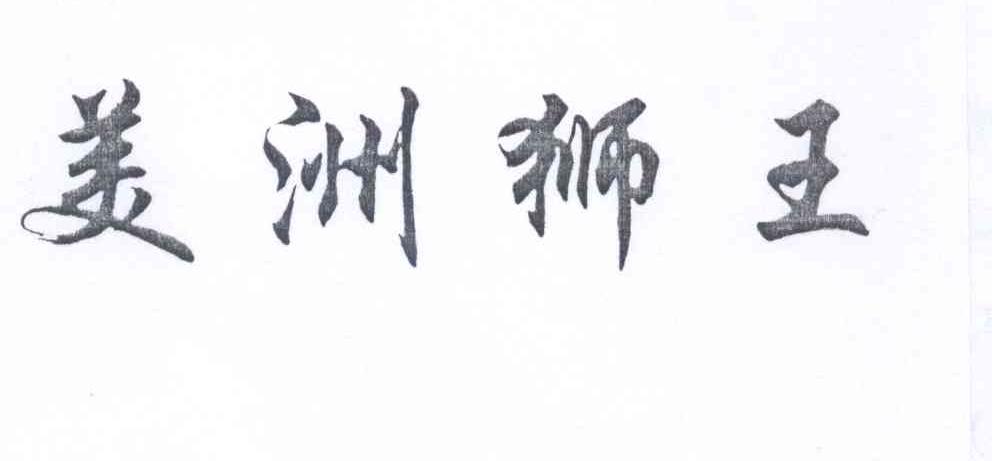 美洲狮王